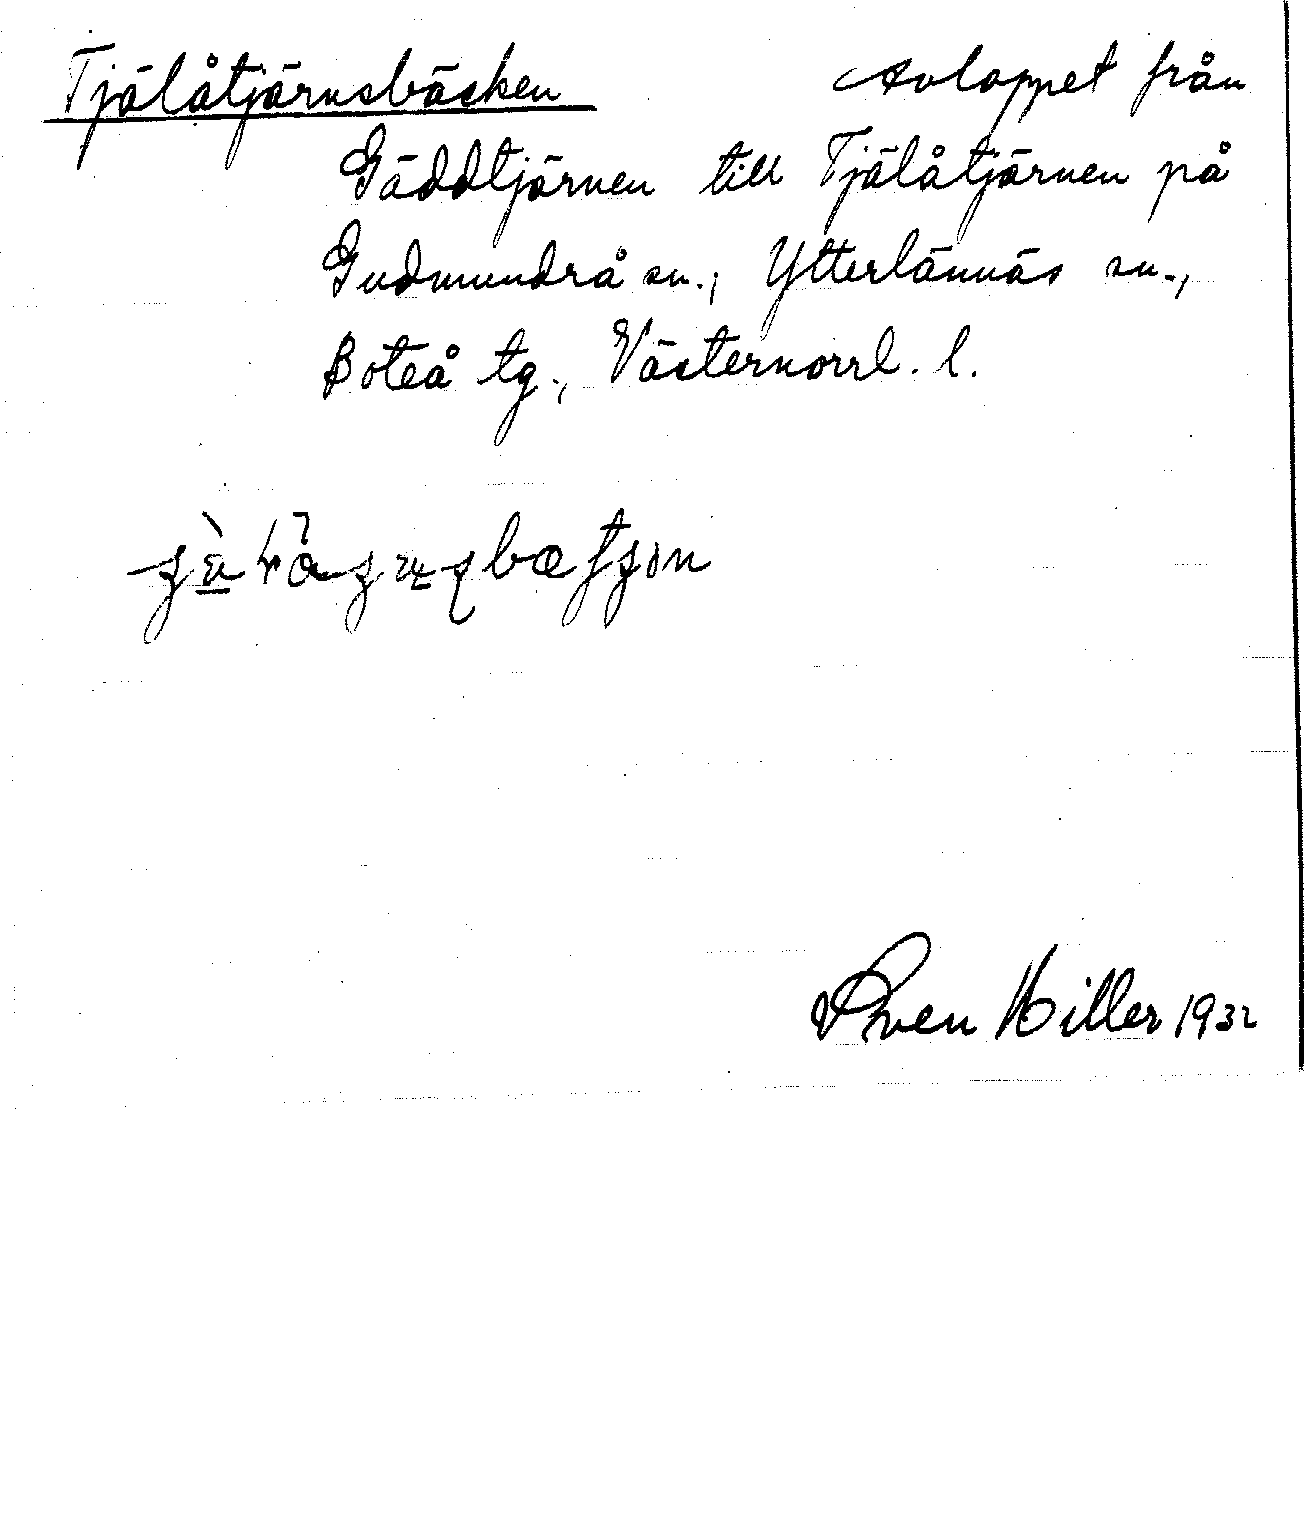 Tjälåtjärnsbäcken Avloppet från
Gäddtjärnen till Tjälåtjärnen på
Gudmundrå sn.; Ytterlännäs sn.,
Boteå tg., Västernorrl. l.
Sven Hiller 1932